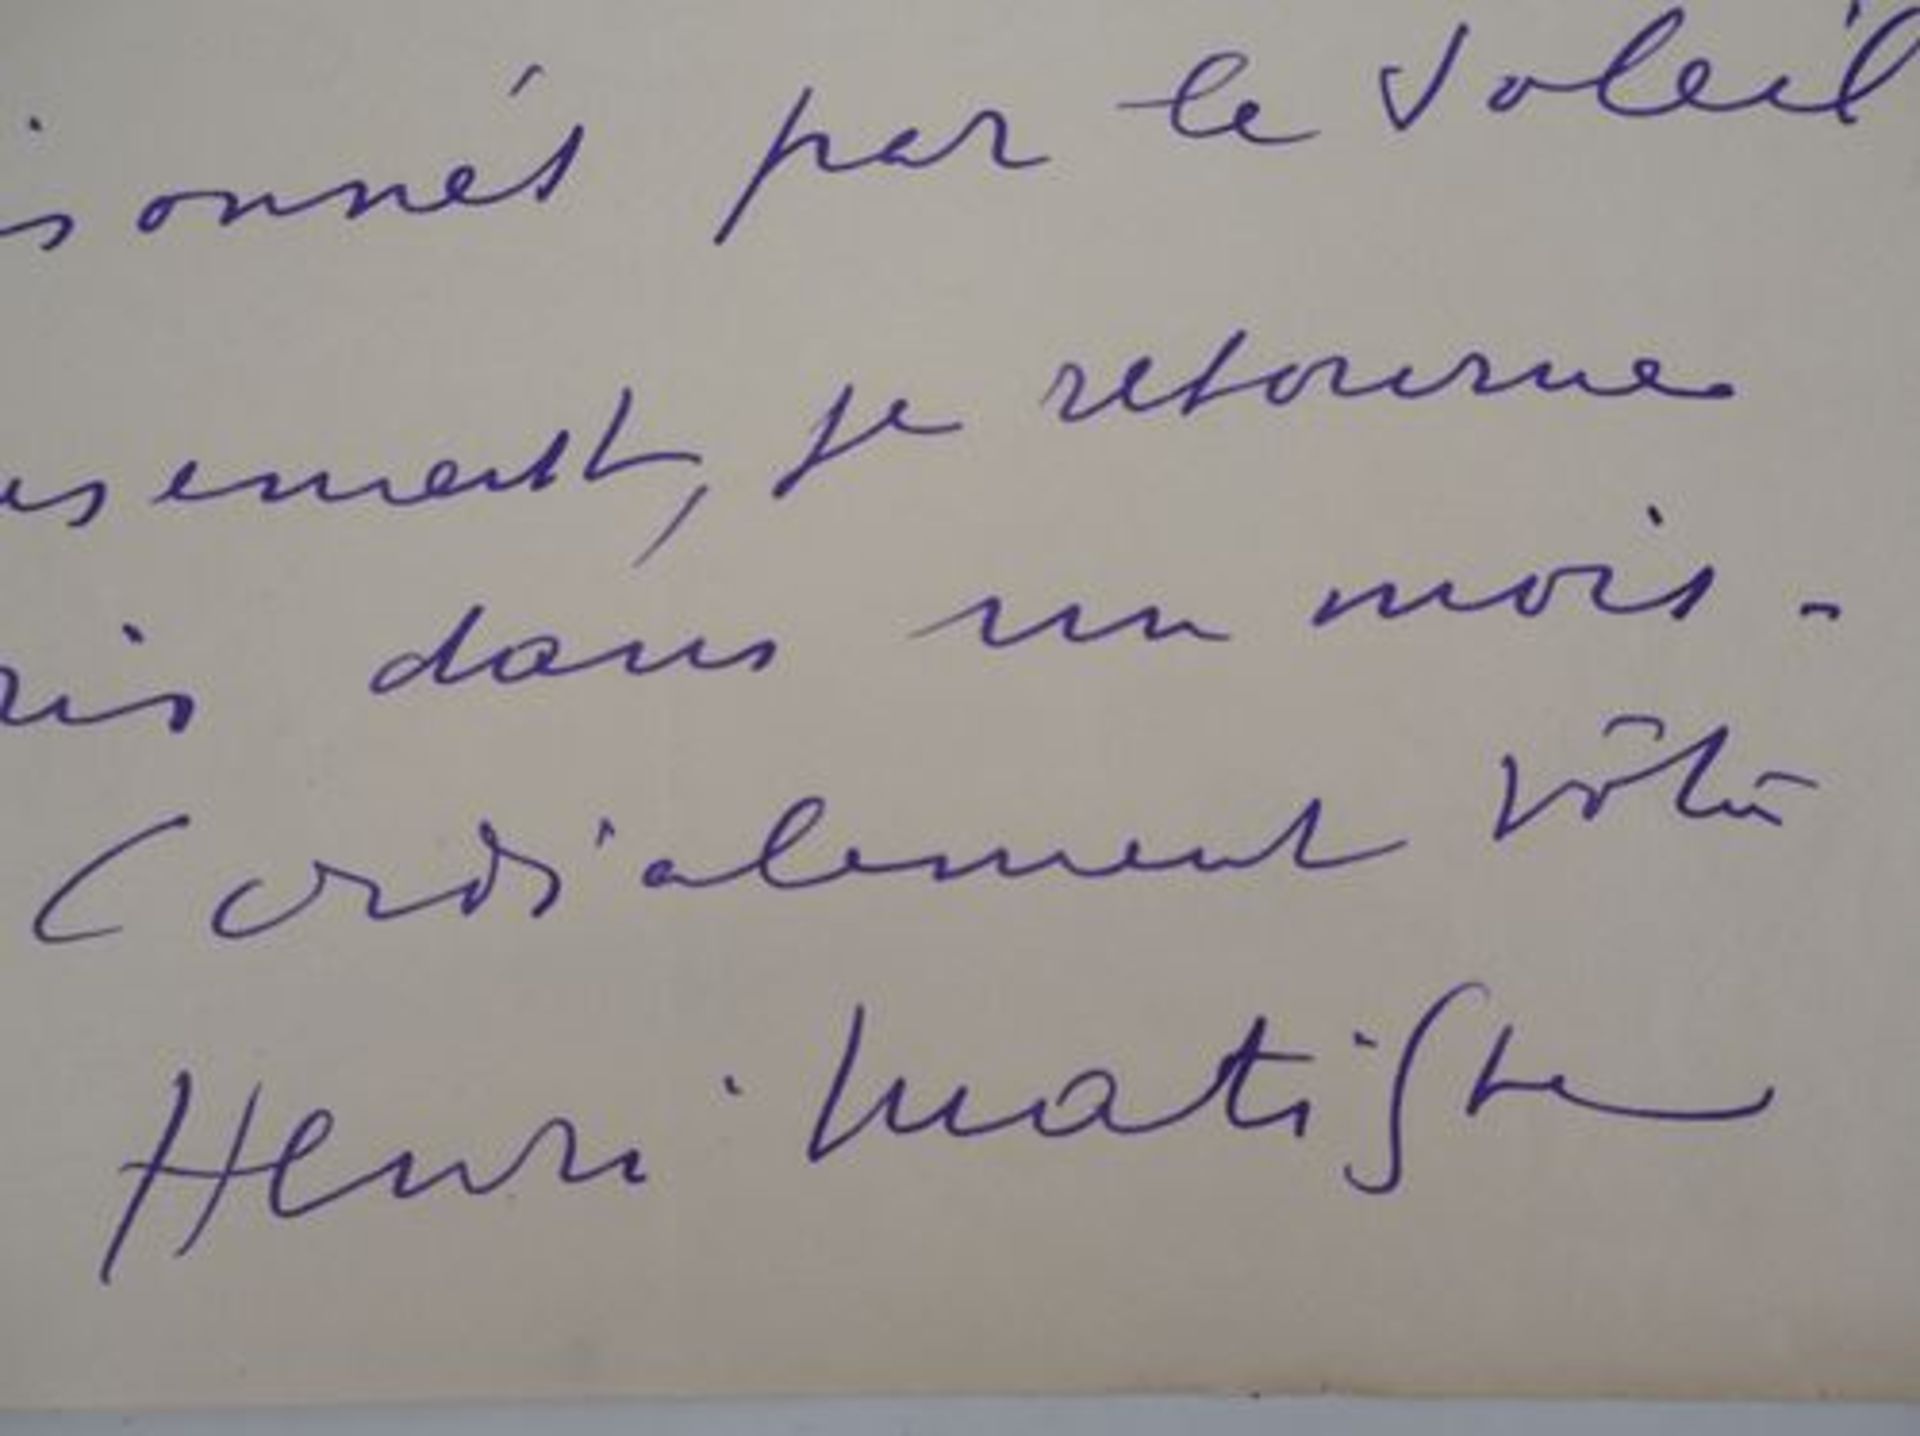 isonnés par le Soleil
usement, je retourne
ris dans un mois -
Cordialement vôtre
Henri Matisse